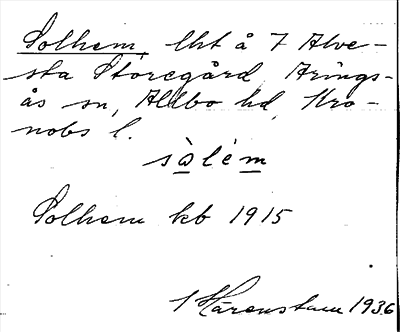 Solhem, lht å 7 Alve-
sta Storegård, Arings-
ås sn, Allbo hd, Kro-
nobs l.
sòlém
Solhem kb 1915
Härenstam 1936